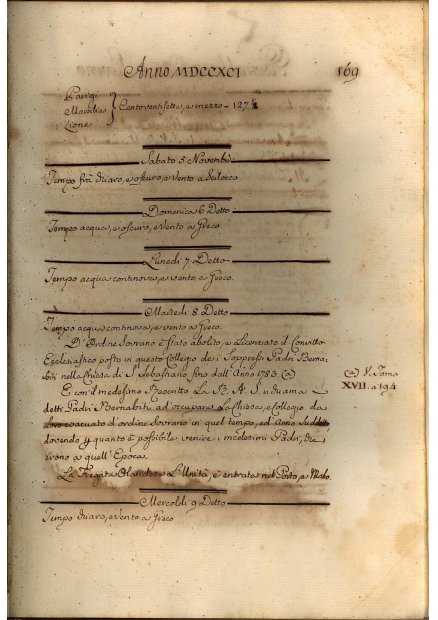 Anno MDCCXCI 169
Parigi
Marsilia } Centoventisette, e mezzo - 127½
Lione
Sabato 5 Novembre
Tempo frà chiaro, e oscuro, e Vento a Scilocco.
Domenica 6 Detto
Tempo acqua, e oscuro, e Vento a Greco
Lunedì 7 Detto
Tempo acqua continova, e vento a Greco.
Martedì 8 Detto
Tempo acqua continova, e vento a Greco.
D'Ordine Sovrano è stato abolito, e Licenziato il Convitto
Ecclesiastico posto in questo Collegio dei Soppressi Padri Berna-
biti nella Chiesa di S. Sebastiano fino dall'Anno 1783. (a)
(a) V. Tomo
XVII. a 194
E con il medesimo La R. A. S.
detti Padri Bernabiti ad occupare La Chiesa, e Collegio da
Loro evacuato d'ordine Sovrano in quel tempo, ed Anno Suddetto
dovendo quanto è possibile venire i medesimi Padri, che
erono a quell'Epoca.
La Fregata Olandese L'Unità, è entrata nel Porto, e Molo.
Mercoldì 9 Detto
Tempo chiaro, e Vento a Greco